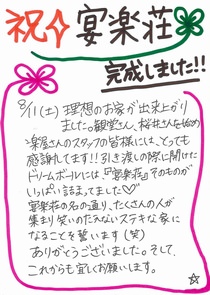 祝 宴楽荘
完成しました!!
8/11(土) 理想のお家が出来上がり
ました。観堂さん、桜井さんを始め
楽居さんのスタッフの皆様には、とっても
感謝してます!! 引き渡しの際に開けた
ドリームボールには『宴楽荘』そのものが
いっぱい詰まってました♡
宴楽荘の名の通り、たくさんの人が
集まり笑いのたえないステキな家に
なることを誓います(笑)
ありがとうございました。そして、
これからも宜しくお願いします。